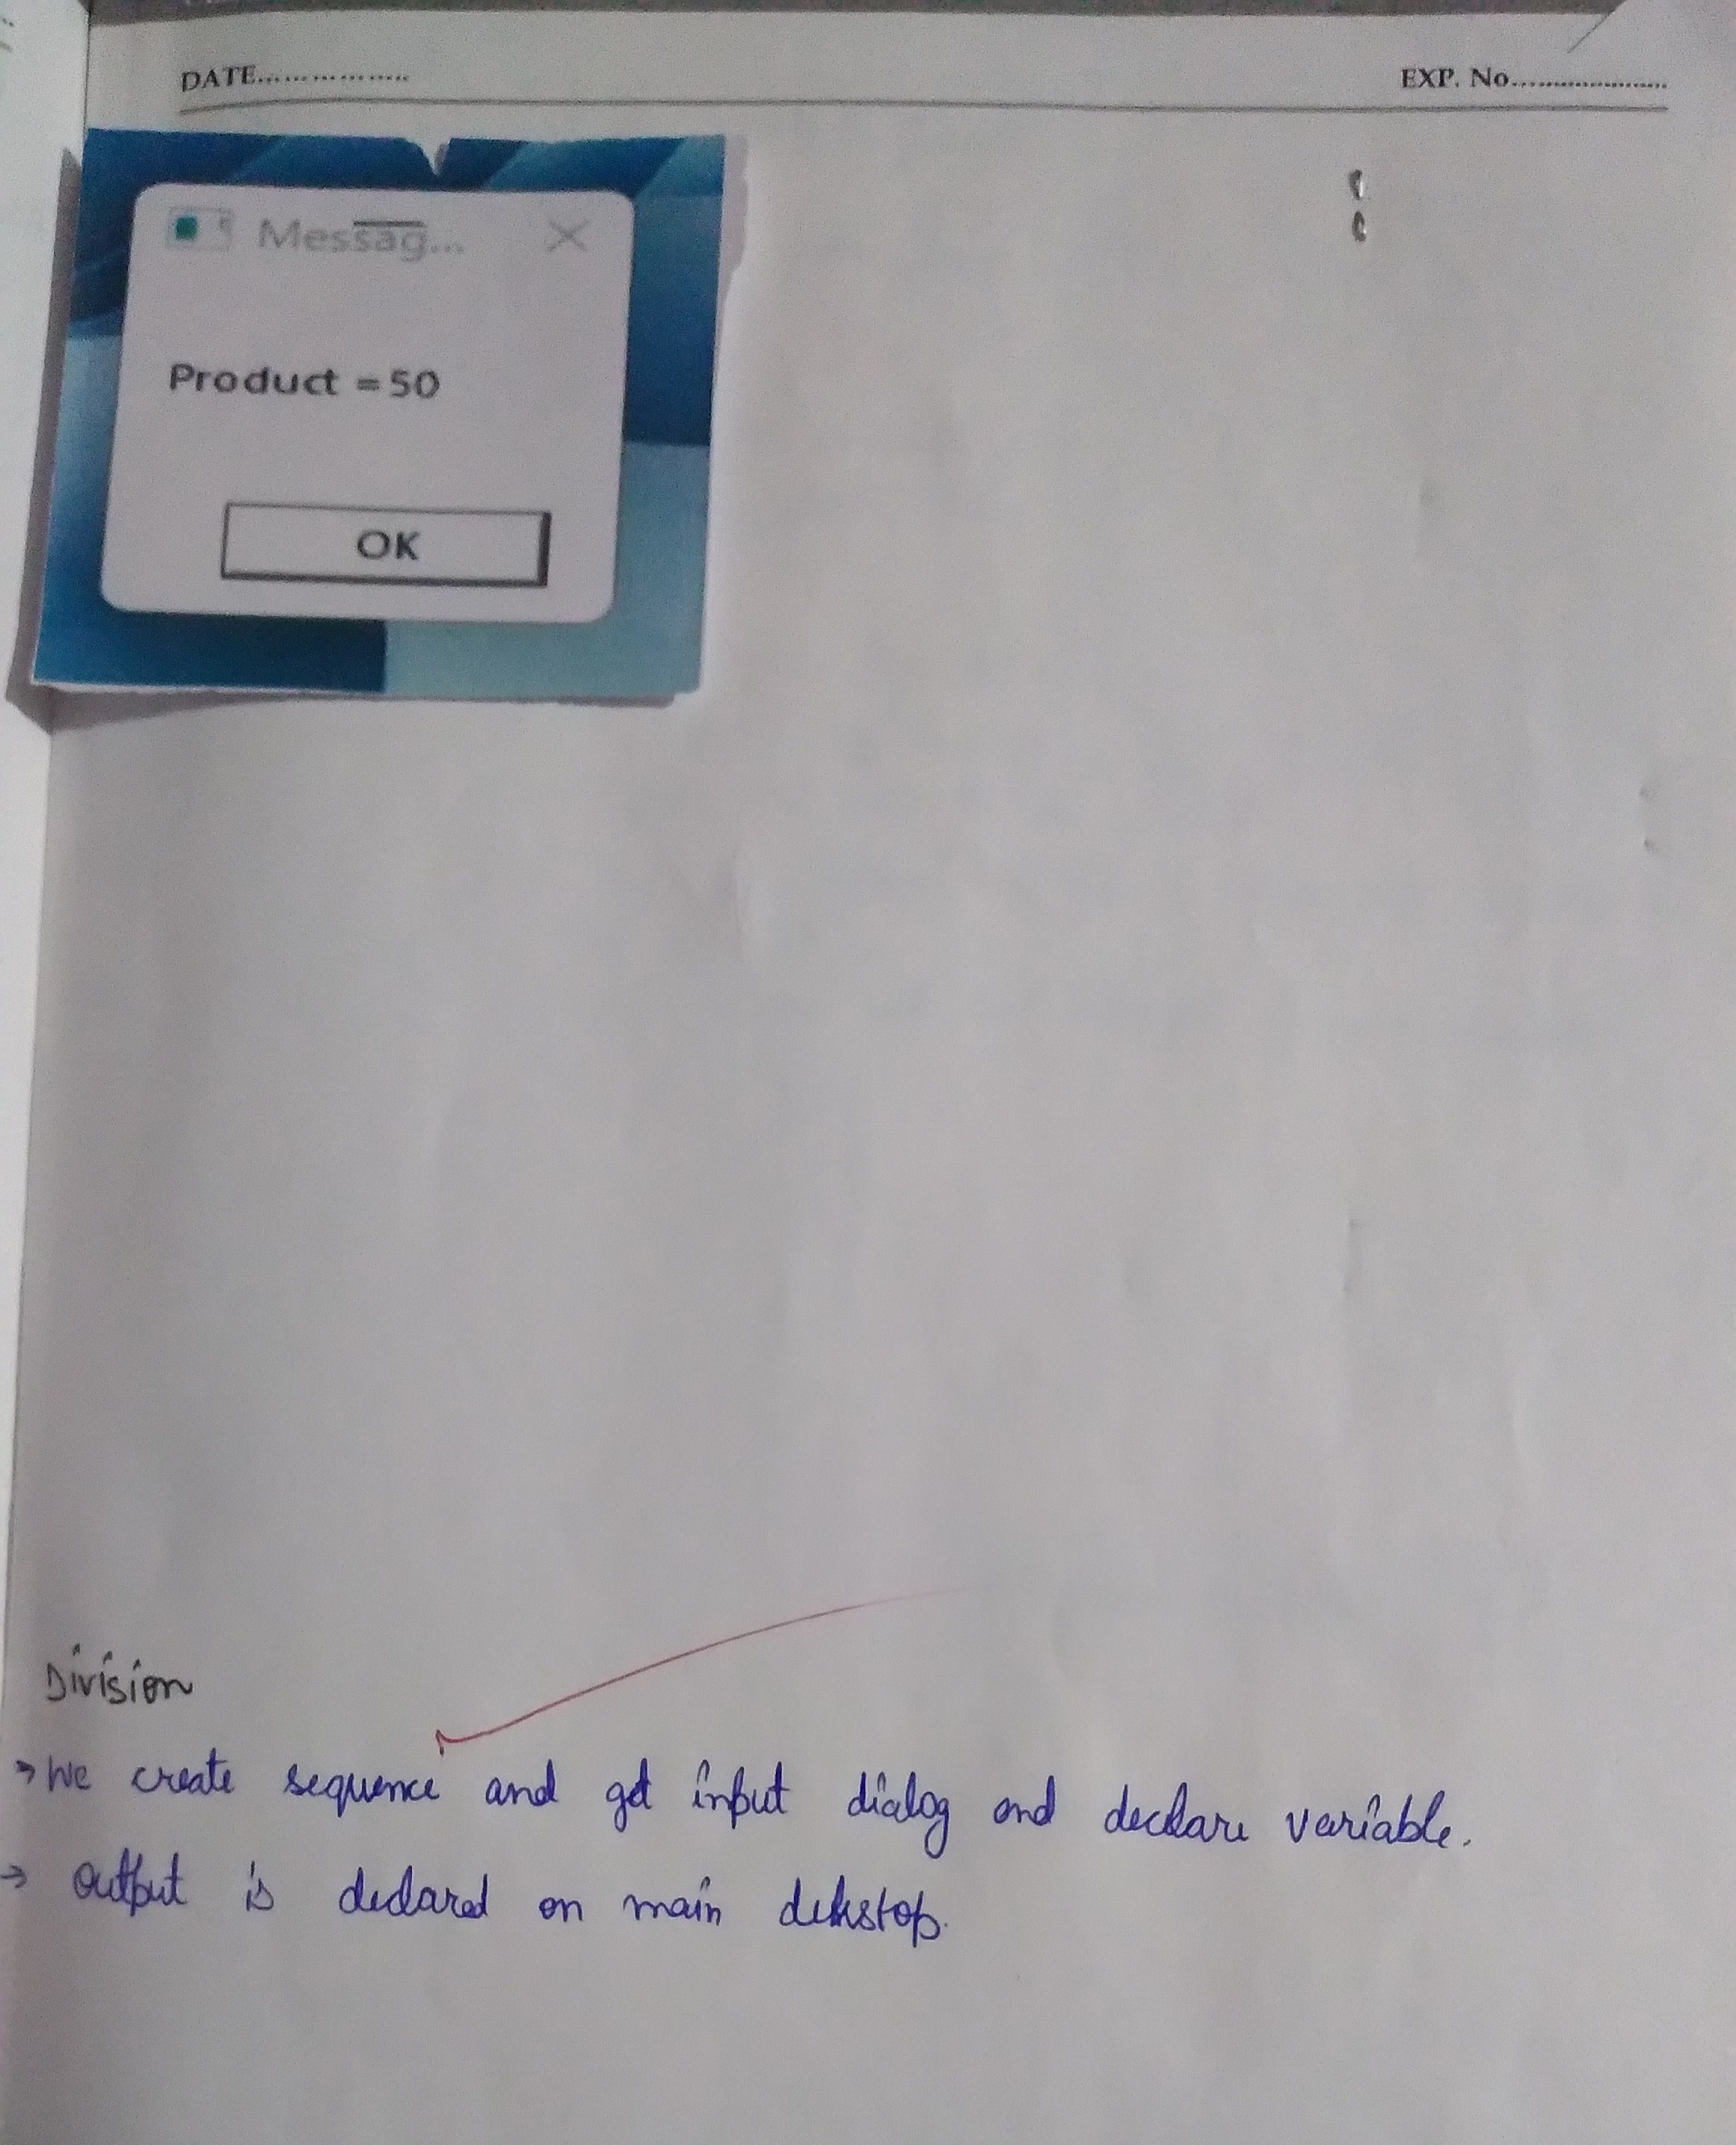 DATE.................. EXP. No......................
Messag...
Product = 50
OK
Division
→ We create sequence and get input dialog and declare variable.
→ output is declared on main dekstop.